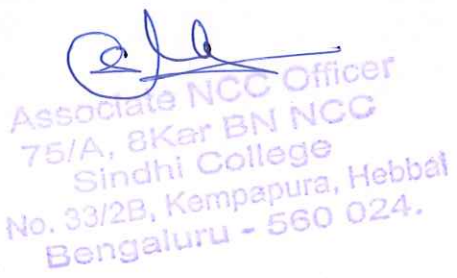 Associate NCC Officer
75/A, 8Kar BN NCC
Sindhi College
No. 33/2B, Kempapura, Hebbal
Bengaluru - 560 024.